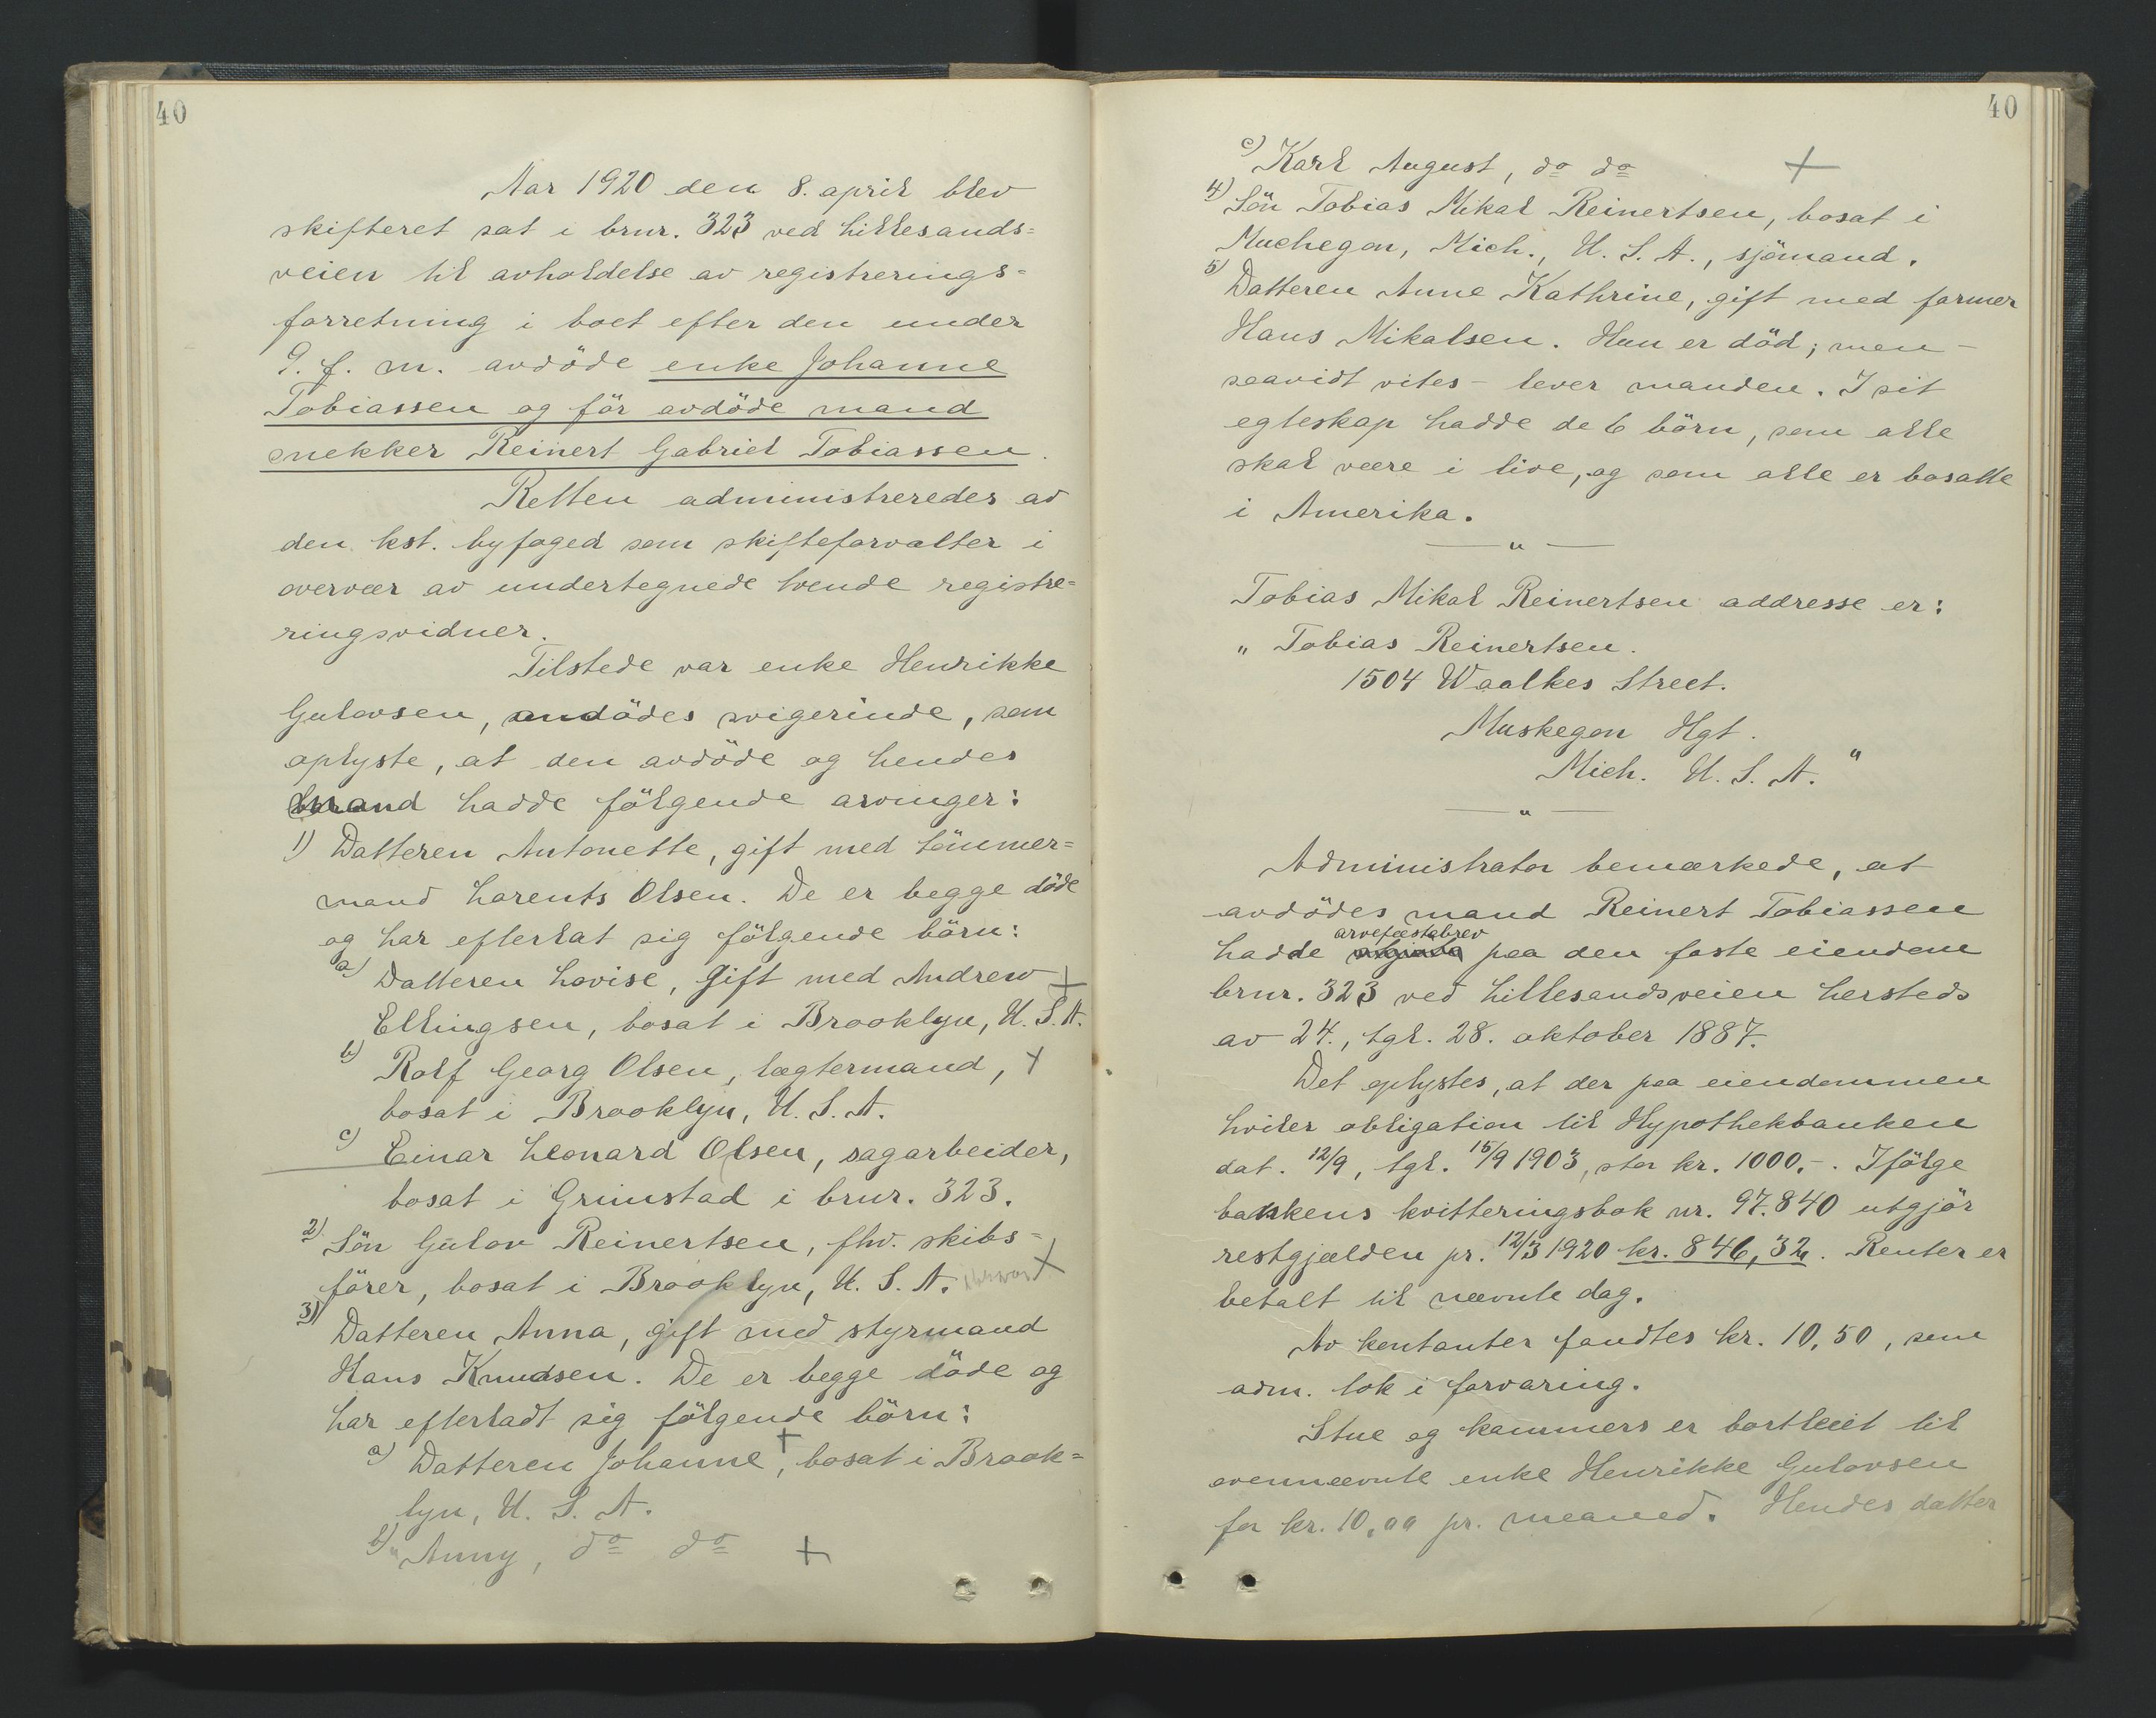 40
Aar 1920 den 8. april blev
skifteret sat i brnr. 323 ved Lillesands=
veien til avholdelse av registrerings=
forretning i boet efter den under
9. f. m. avdöde enke Johanne
Tobiassen og för avdöde mand
snekker Reinert Gabriel Tobiassen.
Retten administreredes av
den kst. byfoged som skifteforvalter i
overvær av undertegnede tvende registre=
ringsvidner.
Tilstede var enke Henrikke
Gulovsen, avdödes svigerinde, som
oplyste, at den avdöde og hendes
mand hadde fölgende arvinger:
1) Datteren Antonette, gift med tömmer=
mand Lorents Olsen. De er begge döde
og har efterlat sig fölgende börn:
a) Datteren Lovise, gift med Andrew +
Ellingsen, bosat i Brooklyn, U. S. A.
b) Rolf Georg Olsen, lægtermand, +
bosat i Brooklyn, U. S. A.
c) Einar Leonard Olsen, sagarbeider,
bosat i Grimstad i brnr. 323.
2) Sön Gulov Reinertsen, fhv. skibs=
förer, bosat i Brooklyn, U. S. A. +
3) Datteren Anna, gift med styrmand
Hans Knudsen. De er begge döde og
har efterladt sig fölgende börn:
a) Datteren Johanne +, bosat i Brook=
lyn, U. S. A.
b) " Anny, do do +
40
c) Karl August, do do +
4) Sön Tobias Mikal Reinertsen, bosat i
Muchegon, Mich., U. S. A., sjömand.
5) Datteren Anne Kathrine, gift med farmer
Hans Mikalsen. Hun er död; men –
saavidt vites – lever manden. I sit
egteskap hadde de 6 börn, som alle
skal være i live, og som alle er bosatte
i Amerika.
— " —
Tobias Mikal Reinertsen addresse er:
" Tobias Reinertsen.
1504 Waalkes Street.
Muskegon Hgt.
Mich. U. S. A. "
— " —
Administrator bemærkede, at
avdödes mand Reinert Tobiassen
hadde arvefæstebrev paa den faste eiendom
brnr. 323 ved Lillesandsveien hersteds
av 24., tgl. 28. oktober 1887.
Det oplystes, at der paa eiendommen
hviler obligation til Hypothekbanken
dat. 12/9, tgl. 15/9 1903, stor kr. 1000.-. Ifölge
bankens kvitteringsbok nr. 97.840 utgjör
restgjælden pr. 12/3 1920 kr. 846,32. Renter er
betalt til nævnte dag.
Av kontanter fandtes kr. 10,50, som
adm. tok i forvaring.
Stue og kammers er bortleiet til
ovennævnte enke Henrikke Gulovsen
for kr. 10,00 pr. maaned. Hendes datter